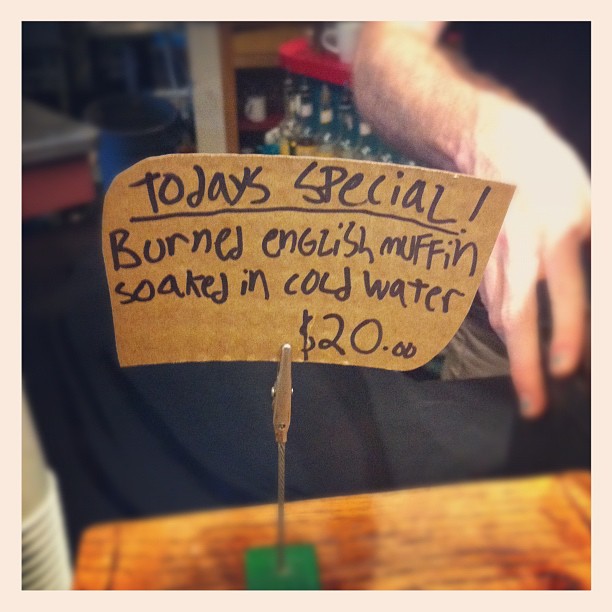 Todays Special!
Burned english muffin
soaked in cold water
$20.00